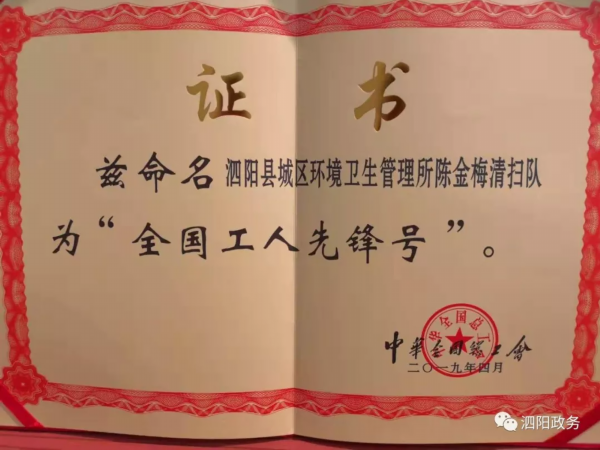 证书
兹命名泗阳县城区环境卫生管理所陈金梅清扫队
为“全国工人先锋号”。
中华全国总工会
中华全国总工会
二〇一九年四月
泗阳政务